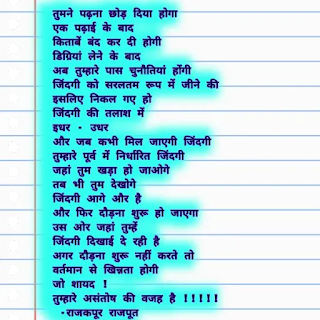 तुमने पढ़ना छोड़ दिया होगा
एक पढ़ाई के बाद
किताबें बंद कर दी होगी
डिग्रियां लेने के बाद
अब तुम्हारे पास चुनौतियां होंगी
जिंदगी को सरलतम रूप में जीने की
इसलिए निकल गए हो
जिंदगी की तलाश में
इधर - उधर
और जब कभी मिल जाएगी जिंदगी
तुम्हारे पूर्व में निर्धारित जिंदगी
जहां तुम खड़ा हो जाओगे
तब भी तुम देखोगे
जिंदगी आगे और है
और फिर दौड़ना शुरू हो जाएगा
उस ओर जहां तुम्हें
जिंदगी दिखाई दे रही है
अगर दौड़ना शुरू नहीं करते तो
वर्तमान से खिन्नता होगी
जो शायद !
तुम्हारे असंतोष की वजह है !!!!!
-राजकपूर राजपूत